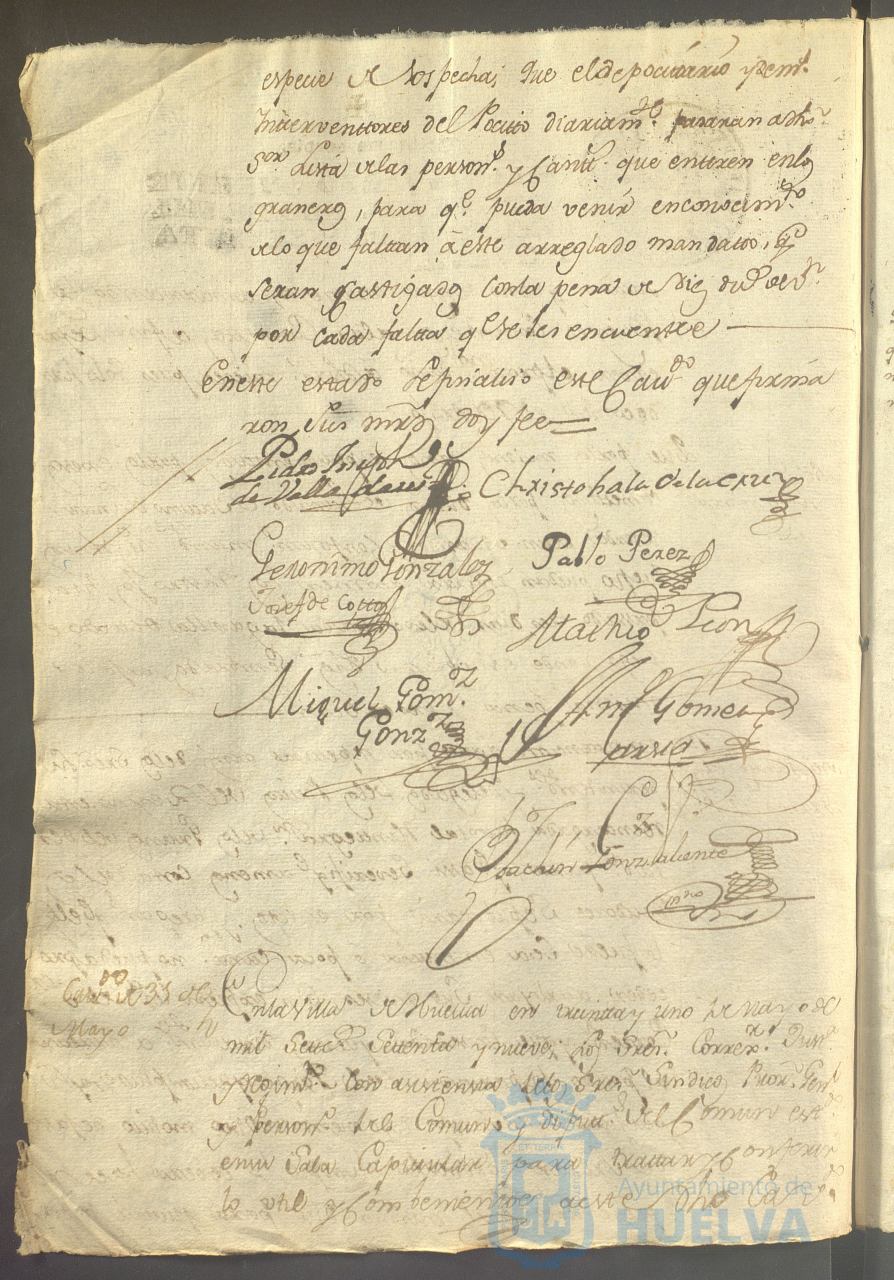 especie de sospecha; que el depocitario y dem.s
Interventtores del Pocitto diariam.te pasaran a dho
S.or Lista de las person.s y Cantt.s que entteren en los
graneros, para q.e pueda venir en conocim.to
de lo que falttan à este arreglado mandatto, y
seran Castigados con la pena de Diez du.s de v.n
por cada faltta q.e se les encuentre
En este estado se finalizo este Cav.do que firma
ron sus mrds doy fee=
Pedro Juseph
de Valladares
Christobal de la cruz
Geronimo Gonzalez
Pablo Perez
Josef de Cotto
Atachio Leon
Miguel Gom.z
Gonz.z
Ant.o Gomez
Joachin Gonz. Valiente
Cav.do de 31 de
Mayo
En la Villa de Huelva en treintta y uno de Mayo de
mil settec.s settenta y nueve; los Sres. Correx.r Just.a
y Regim.to con asistensia de los Sres. Sindico Pror. Gen.l
y Person.o del Comun, y diputt.s del Comun est.do
en su Sala Capitular para trattar y Conferir
lo util y Combeniente a este dho Ca
Ayuntamiento de
HUELVA